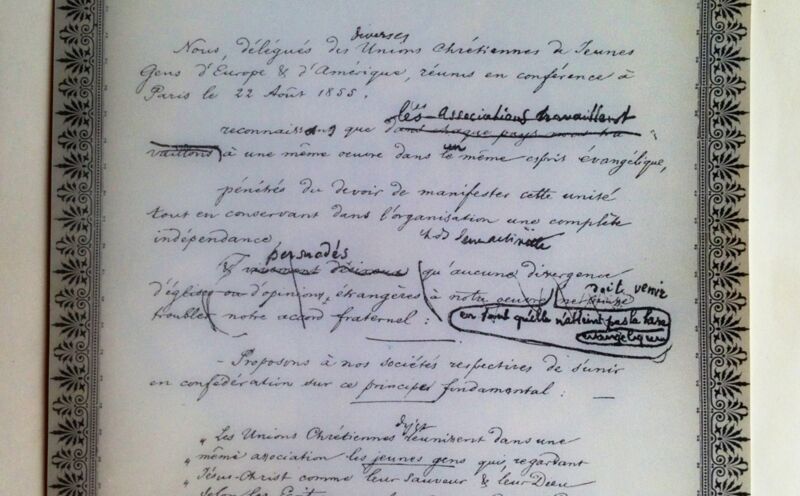 diverses
Nous, délégués des Unions Chrétiennes de Jeunes
Gens d'Europe & d'Amérique, réunis en conférence à
Paris le 22 Août 1855.
les Associations travaillent
reconnaissons que dans chaque pays nous tra
vaillons à une même oeuvre dans un même esprit évangélique,
pénétrés du devoir de manifester cette unité
tout en conservant dans l'organisation une complète
indépendance
persuadés
& qu'aucune divergence
doit venir
d'églises ou d'opinions, étrangères à notre oeuvre ne puisse
troubler notre accord fraternel :
en tant qu'elle n'atteint pas la base
évangélique
- Proposons à nos sociétés respectives de s'unir
en confédération sur ce principe fondamental :
„ Les Unions Chrétiennes réunissent dans une
„ même association les jeunes gens qui, regardant
„ Jésus-Christ comme leur Sauveur & leur Dieu
selon les